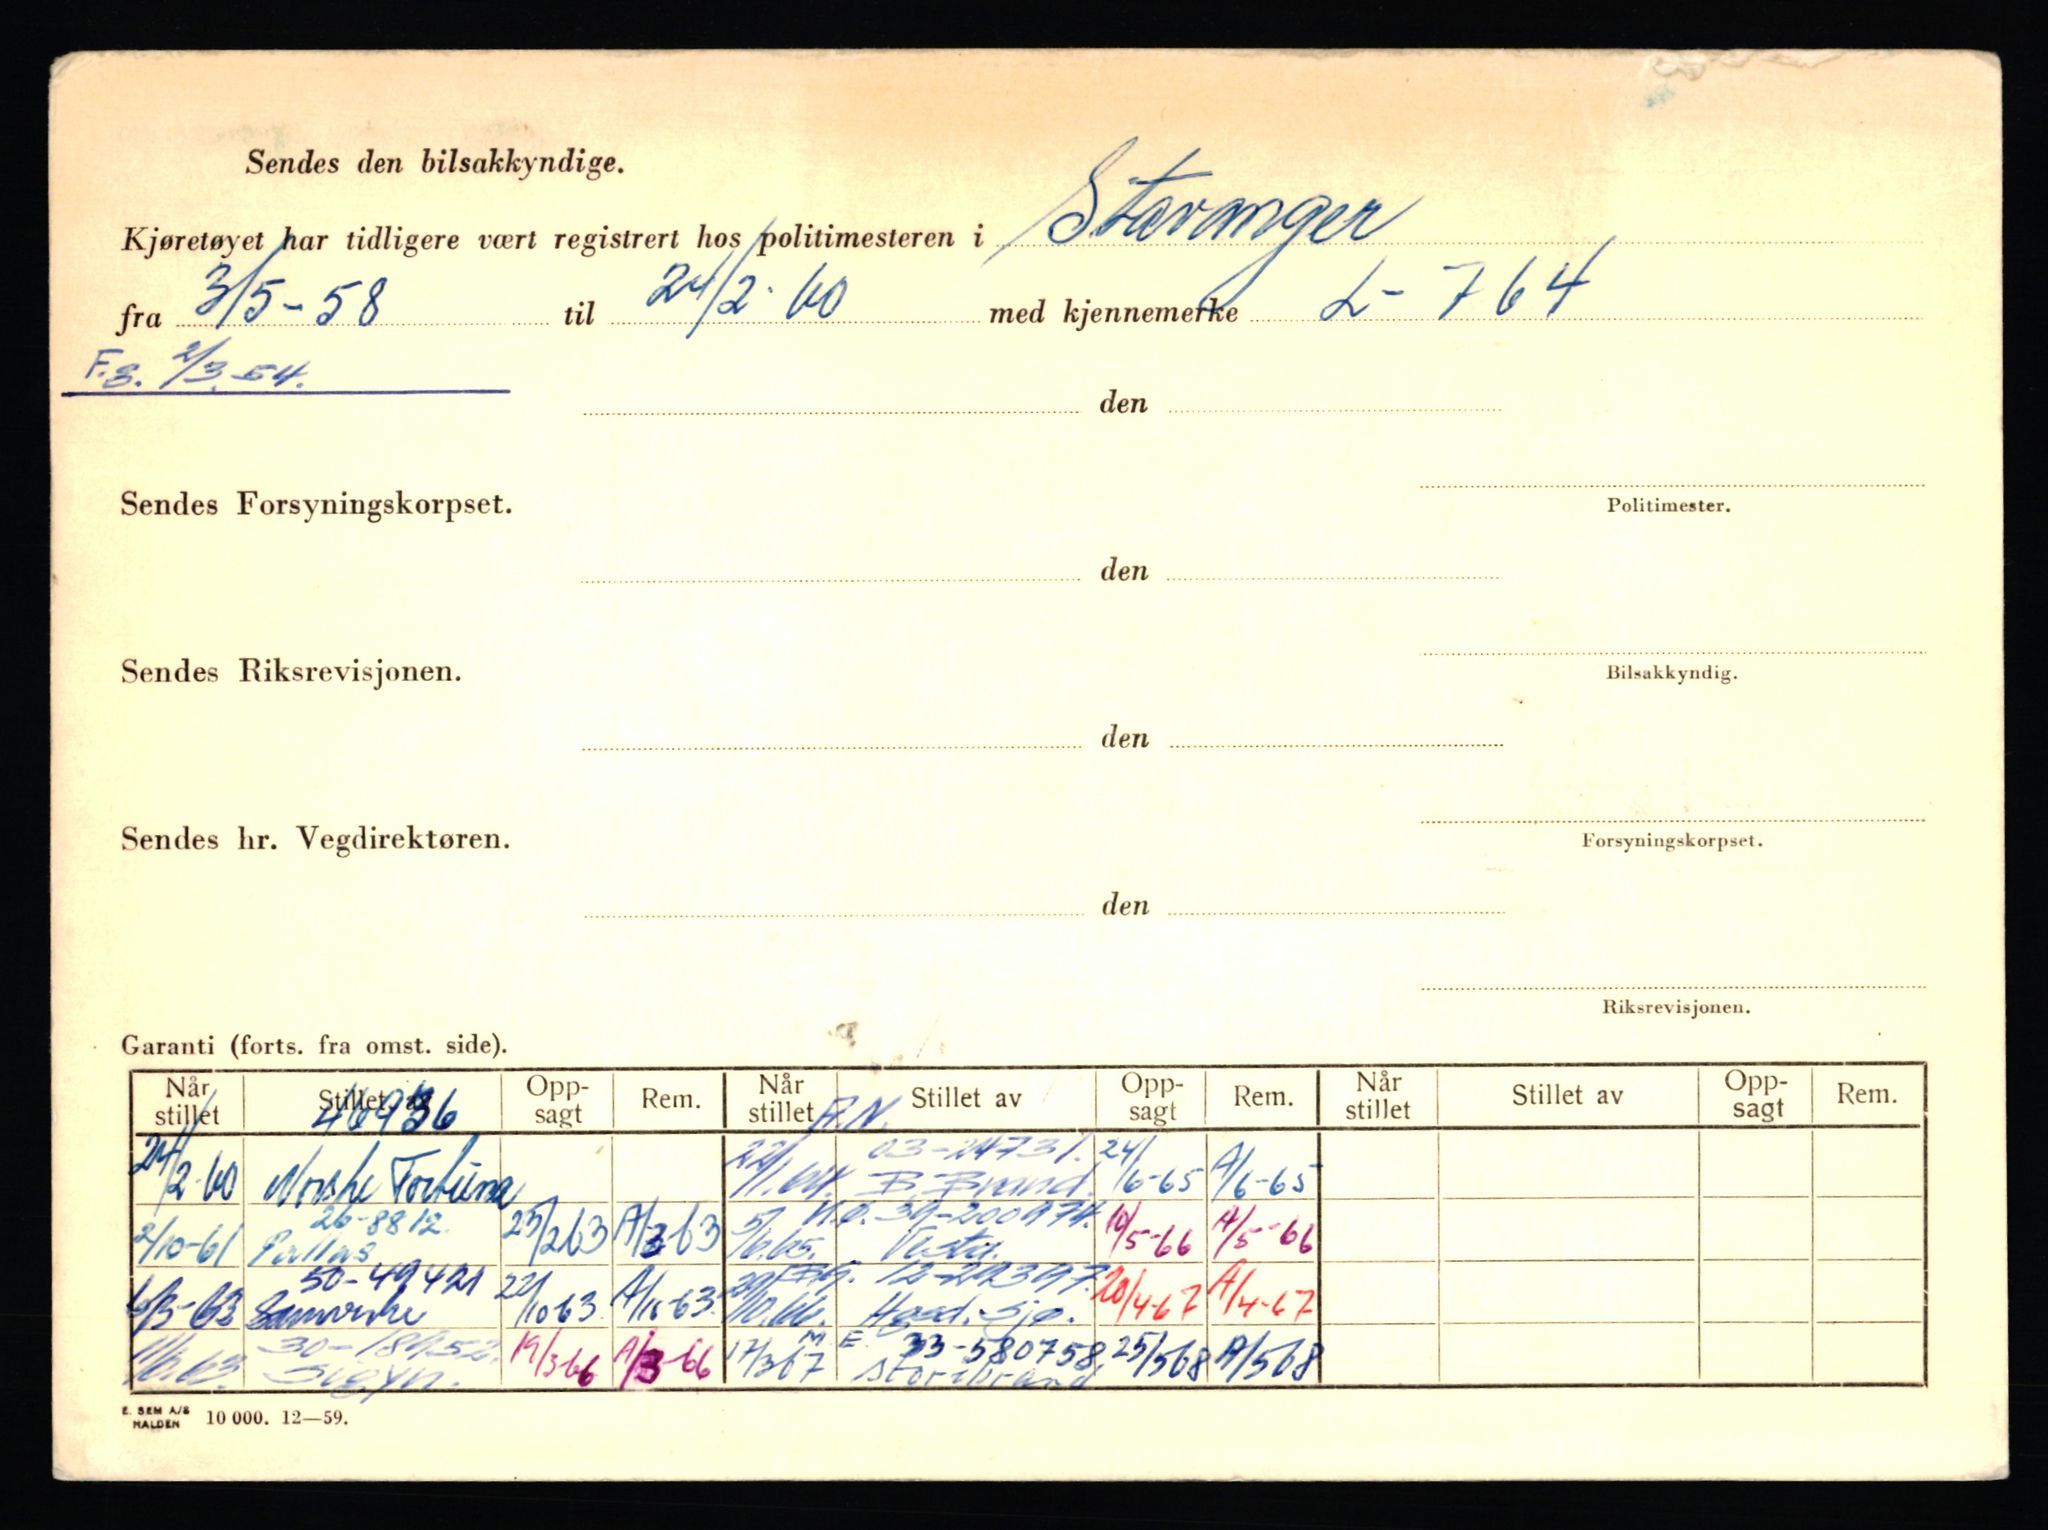 Sendes den bilsakkyndige.
Kjøretøyet har tidligere vært registrert hos politimesteren i Stavanger
fra 3/5-58 til 24/2-60 med kjennemerke L-764
F.g. 2/3.-54.
den
Sendes Forsyningskorpset.
Politimester.
den
Sendes Riksrevisjonen.
Bilsakkyndig.
den
Sendes hr. Vegdirektøren.
Forsyningskorpset.
den
Riksrevisjonen.
Garanti (forts. fra omst. side).
Når stillet Stillet av Opp-sagt Rem. Når stillet Stillet av Opp-sagt Rem. Når stillet Stillet av Opp-sagt Rem.
46936
24/2-60 Norske Fortuna
03-24731.
22/1.64. B. Brand. 24/6-65 A/6-65
26-8812.
2/10-61 Pallas 25/2 63 A/3-63
39-200974.
5/6.65. Vesta. 10/5-66 A/5-66
50-49421
6/3-63 Samvirke 22/10-63 A/11-63
12-212397.
/10.66. Haad. Sjø. 20/4-67 A/4-67
30-
11/6.63. Sigyn. 19/3-66 A/3-66
33-580758
17/3 67 Storebrand 25/5 68 A/5 68
E. SEM A/S
HALDEN 10 000. 12—59.